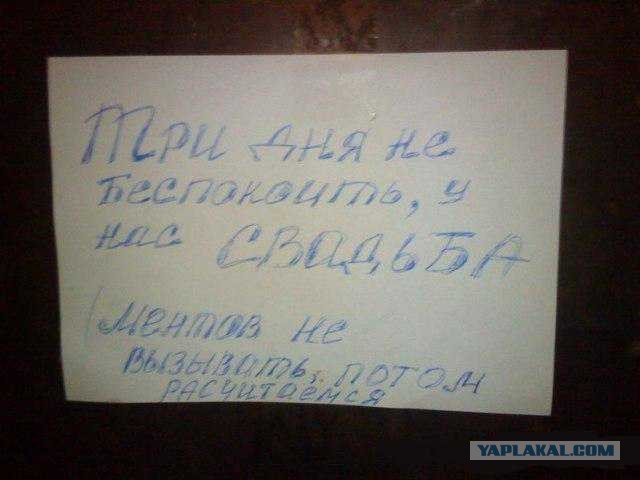 Три дня не
беспокоить, у
нас СВАДЬБА
Ментов не
вызывать, потом
расчитаемся
YAPLAKAL.COM